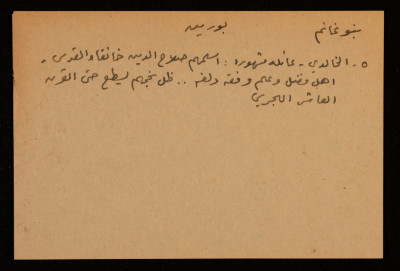 بنو غانم
بورين
٥ - الخالدي - عائلة مشهورة : اسلمهم صلاح الدين خانقاه القدس -
اهل فضل وعلم وفقه ولغة .. ظل نجمهم يسطع حتى القرن
العاشر الهجري